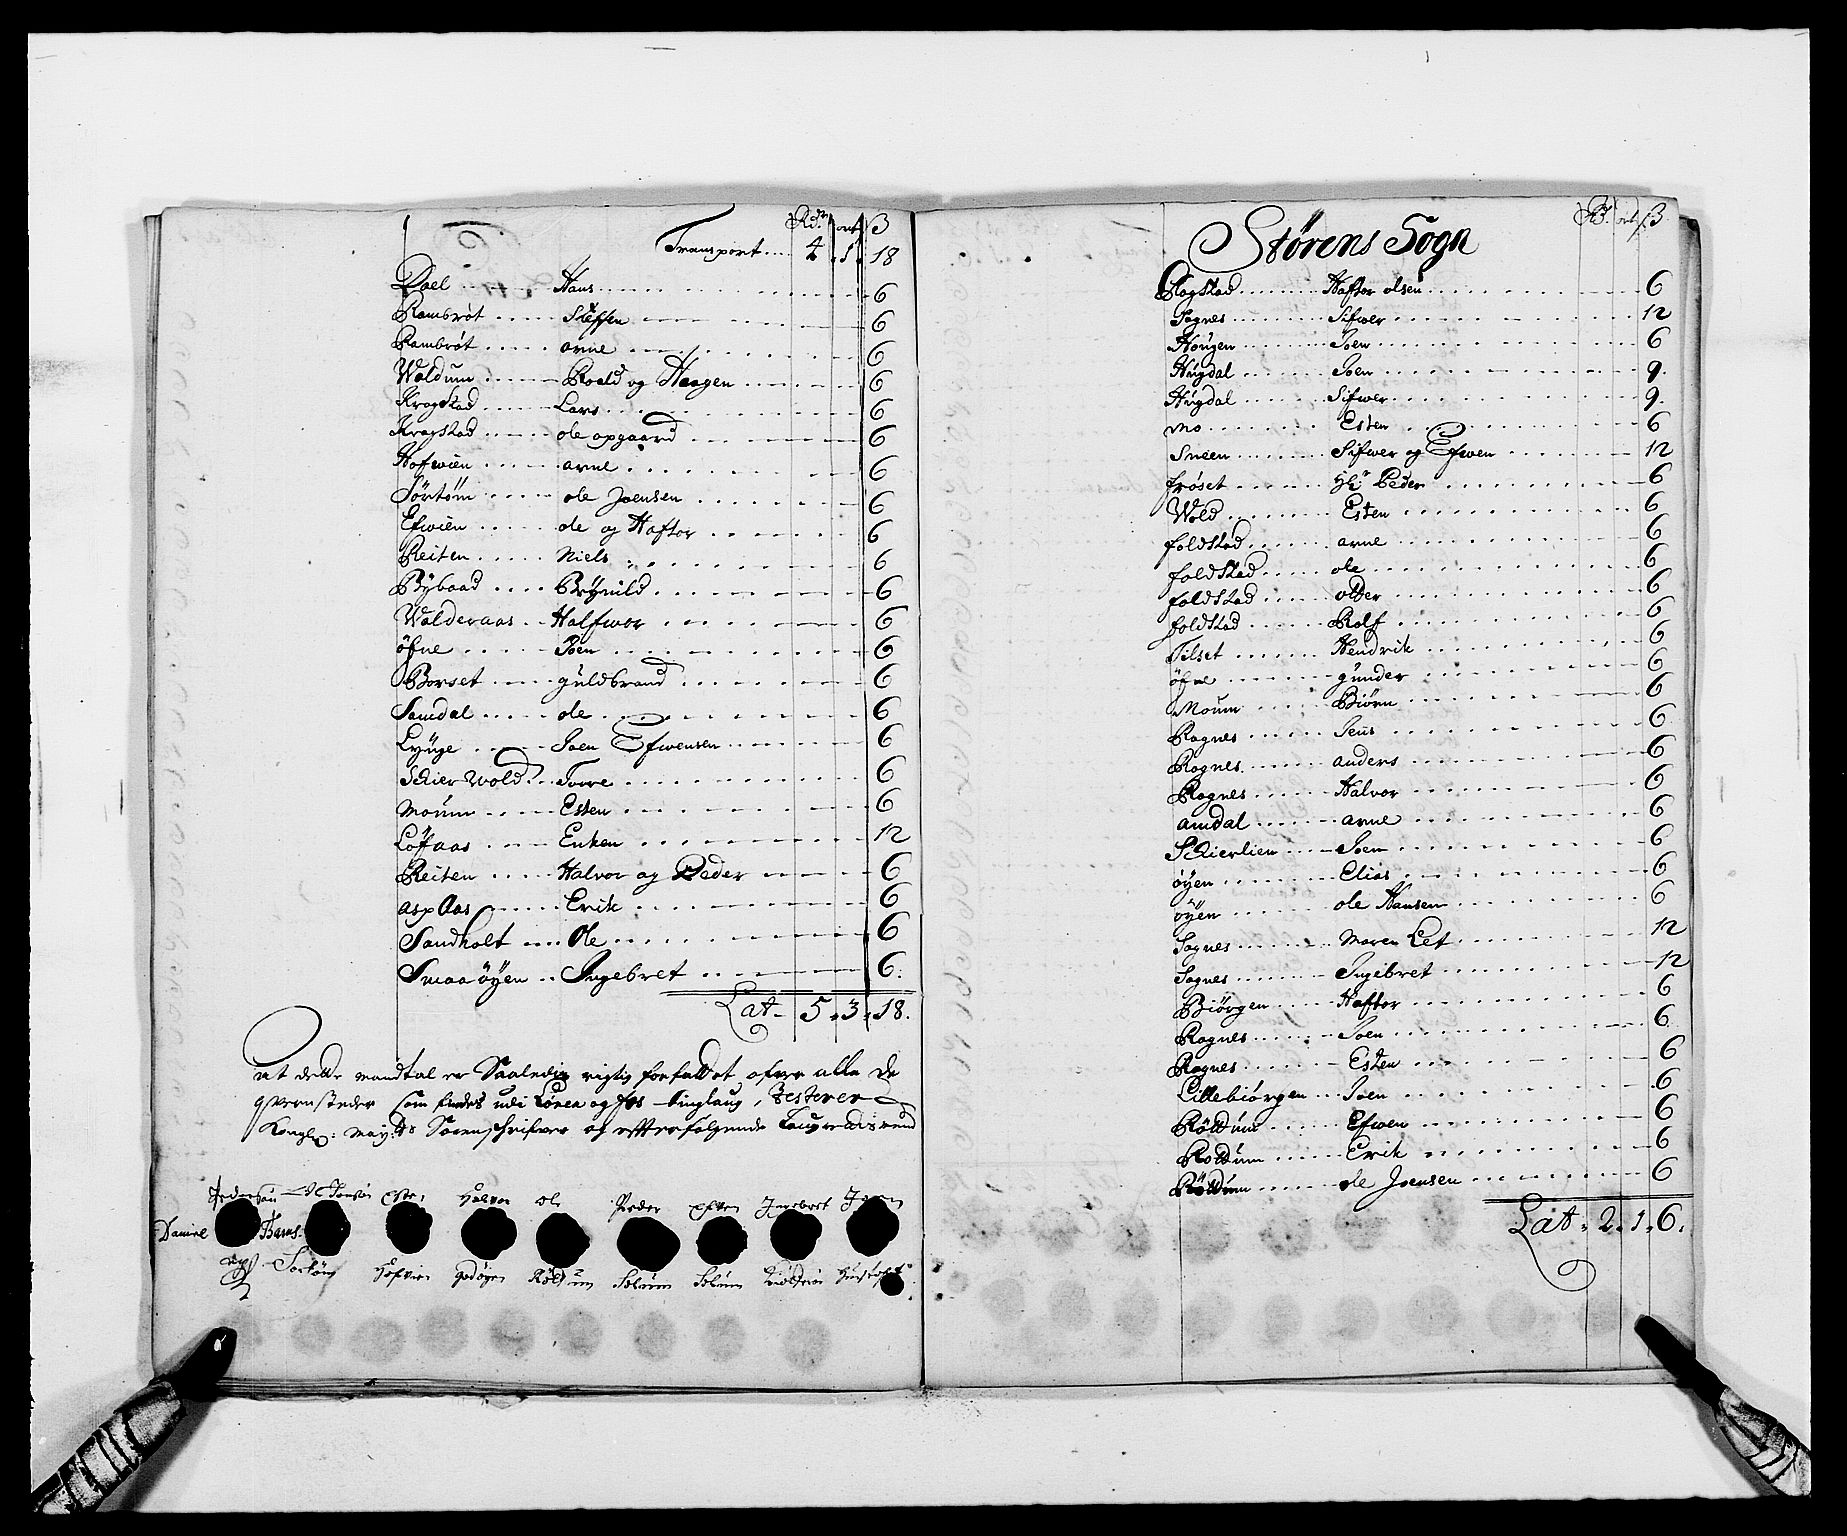 Rdr ort ß
Transport .... 4 . 1 . 18
Dael ..... Hans ..... 6
Rambrøt ..... Steffen ..... 6
Rambrøt ..... arne ..... 6
Woldum ..... Roald og Haagen ..... 6
Kragstad ..... Lars ..... 6
Kragstad ..... ole opgaard ..... 6
Hofwien ..... arne ..... 6
Sørtøm ..... ole Joensen ..... 6
Efwien ..... ole og Haftor ..... 6
Reiten ..... Niels ..... 6
Bÿbaad ..... Brÿnild ..... 6
Walderaas .. Halfwor ..... 6
öfne ..... Joen ..... 6
Borset ..... guldbrand ..... 6
Samdal ..... ole ..... 6
Lÿnge ..... Joen Efwensen ..... 6
Schierwold ... Torre ..... 6
moum ..... Esten ..... 6
Löfaas ..... Enken ..... 12
Reiten ..... Halvor og Peder ..... 6
aspAas ..... Erik ..... 6
Sandholt ..... Ole ..... 6
Smaaöÿen .. Ingebret ..... 6.
Lat - 5 . 3 . 18.
at dette mandtal er Saaledis rigtig forfattet ofver alle de
qvernsteder som findes udi tinglaug, Testerer
Kongl: May:ts Sorenschrifver og efterfølgende Laugrettismend
Pedersøn Ole Joensøn Esten Halvor ole Peder Efven Ingebret Joen
Daniel Hans.
Hofvien godøyen Røldum Solum Solum
R. ort ß
Störens Sogn
Rogstad ..... Haftor olsen ..... 6
Sognes ..... Sifwer ..... 12
Hougen ..... Joen ..... 6
Hugdal ..... Joen ..... 9.
Hugdal ..... Sifwer ..... 9.
mo ..... Esten ..... 6
Sneen ..... Sifwer og Efwen ..... 12
frøset ..... Hr Peder ..... 6
Wold ..... Esten ..... 6
foldstad ..... arne ..... 6
foldstad ..... ole ..... 6
foldstad ..... older ..... 6
foldstad ..... Rolf ..... 6
Tilset ..... Hendrik ..... 6
öfne ..... gunder ..... 6
Moum ..... Biörn ..... 6
Rognes ..... Jens ..... 6
Rognes ..... anders ..... 6
Rognes ..... Halvor ..... 6
amdal ..... arne ..... 6
Schierlien ..... Joen ..... 6
öÿen ..... Elias ..... 6
öÿen ..... ole Hansen ..... 6
Sognes ..... Maren Let ..... 12
Sognes ..... Ingebret ..... 12
Biörgen ..... Haftor ..... 6
Rognes ..... Joen ..... 6.
Rognes ..... Esten ..... 6
Lillebiörgen ... Joen ..... 6
Röldum ..... Efwen ..... 6
Roldum ..... Erik ..... 6
Röldum ..... ole Joensen ..... 6
Lat . 2 . 1 . 6.